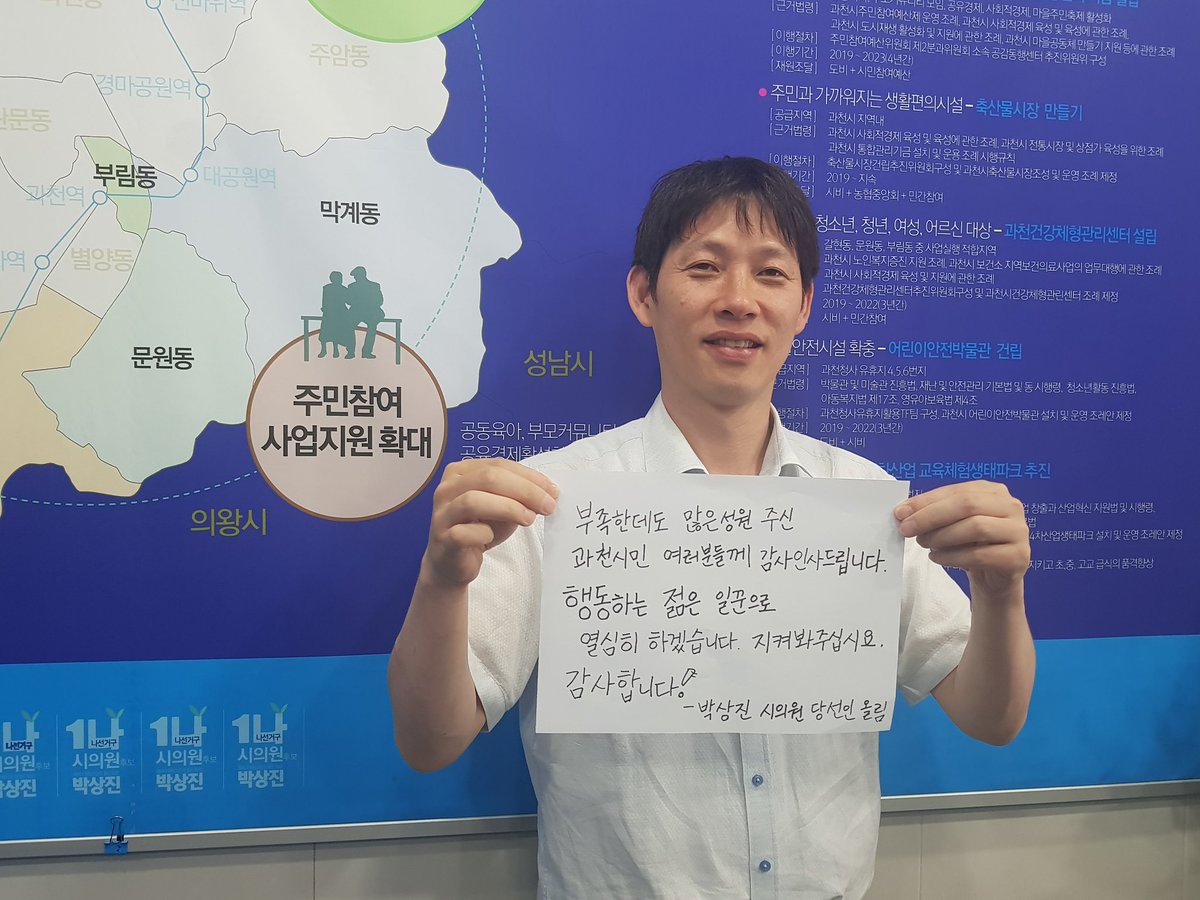 주암동
경마공원역
부림동
과천역
대공원역
막계동
별양동
문원동
주민참여
사업지원 확대
성남시
의왕시
[근거법령] 과천시주민참여예산제 운영 조례, 과천시 사회적경제 육성 및 육성에 관한 조례,
과천시 도시재생 활성화 및 지원에 관한 조례, 과천시 마을공동체 만들기 지원 등에 관한 조례
[이행절차] 주민참여예산위원회 제2분과위원회 소속 공감동행센터 추진위원위 구성
[이행기간] 2019 ~ 2023(4년간)
[재원조달] 도비 + 시민참여예산
주민과 가까워지는 생활편의시설 – 축산물시장 만들기
[공급지역] 과천시 지역내
[근거법령] 과천시 사회적경제 육성 및 육성에 관한 조례, 과천시 전통시장 및 상점가 육성을 위한 조례
과천시 통합관리기금 설치 및 운용 조례 시행규칙
[이행절차] 축산물시장건립추진위원회구성 및 과천시축산물시장조성 및 운영 조례 제정
2019 ~ 지속
시비 + 농협중앙회 + 민간참여
청소년, 청년, 여성, 어르신 대상 – 과천건강체형관리센터 설립
갈현동, 문원동, 부림동 중 사업실행 적합지역
과천시 노인복지증진 지원 조례, 과천시 보건소 지역보건의료사업의 업무대행에 관한 조례
과천시 사회적경제 육성 및 지원에 관한 조례
과천건강체형관리센터추진위원회구성 및 과천시건강체형관린센터 조례 제정
2019 ~ 2022(3년간)
시비 + 민간참여
안전시설 확충 – 어린이안전박물관 건립
과천청사 유휴지 4,5,6번지
박물관 및 미술관 진흥법, 재난 및 안전관리 기본법 및 동 시행령, 청소년활동 진흥법,
아동복지법 제17조, 영유아보육법 제4조
과천청사유휴지활용TF팀 구성, 과천시 어린이안전박물관 설치 및 운영 조례안 제정
2019 ~ 2022(3년간)
도비 + 시비
산업 교육체험생태파크 추진
창출과 산업혁신 지원법 및 시행령,
4차산업생태파크 설치 및 운영 조례안 제정
지키고 초,중, 고교 급식의 품격향상
공동육아, 부모커뮤니티
부족한데도 많은성원 주신
과천시민 여러분들께 감사인사드립니다.
행동하는 젊은 일꾼으로
열심히 하겠습니다. 지켜봐주십시요.
감사합니다!
- 박상진 시의원 당선인 올림
1나 1나 1나
나선거구 나선거구 나선거구 나선거구
시의원후보 시의원후보 시의원후보
박상진 박상진 박상진